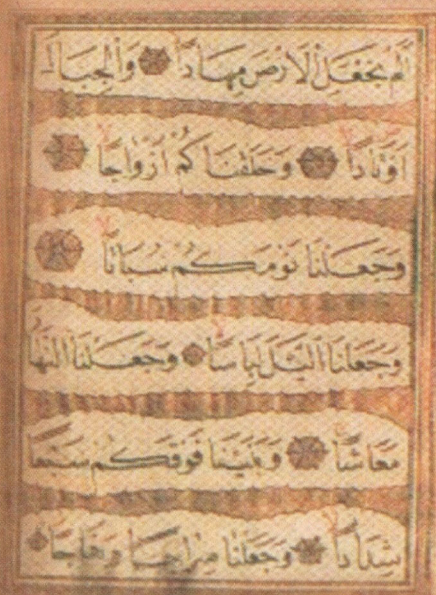 أَلَمْ نَجْعَلِ الْأَرْضَ مِهَادًا وَالْجِبَالَ
أَوْتَادًا وَخَلَقْنَاكُمْ أَزْوَاجًا
وَجَعَلْنَا نَوْمَكُمْ سُبَاتًا
وَجَعَلْنَا اللَّيْلَ لِبَاسًا وَجَعَلْنَا النَّهَا
مَعَاشًا وَبَنَيْنَا فَوْقَكُمْ سَبْعًا
شِدَادًا وَجَعَلْنَا سِرَاجًا وَهَّاجًا